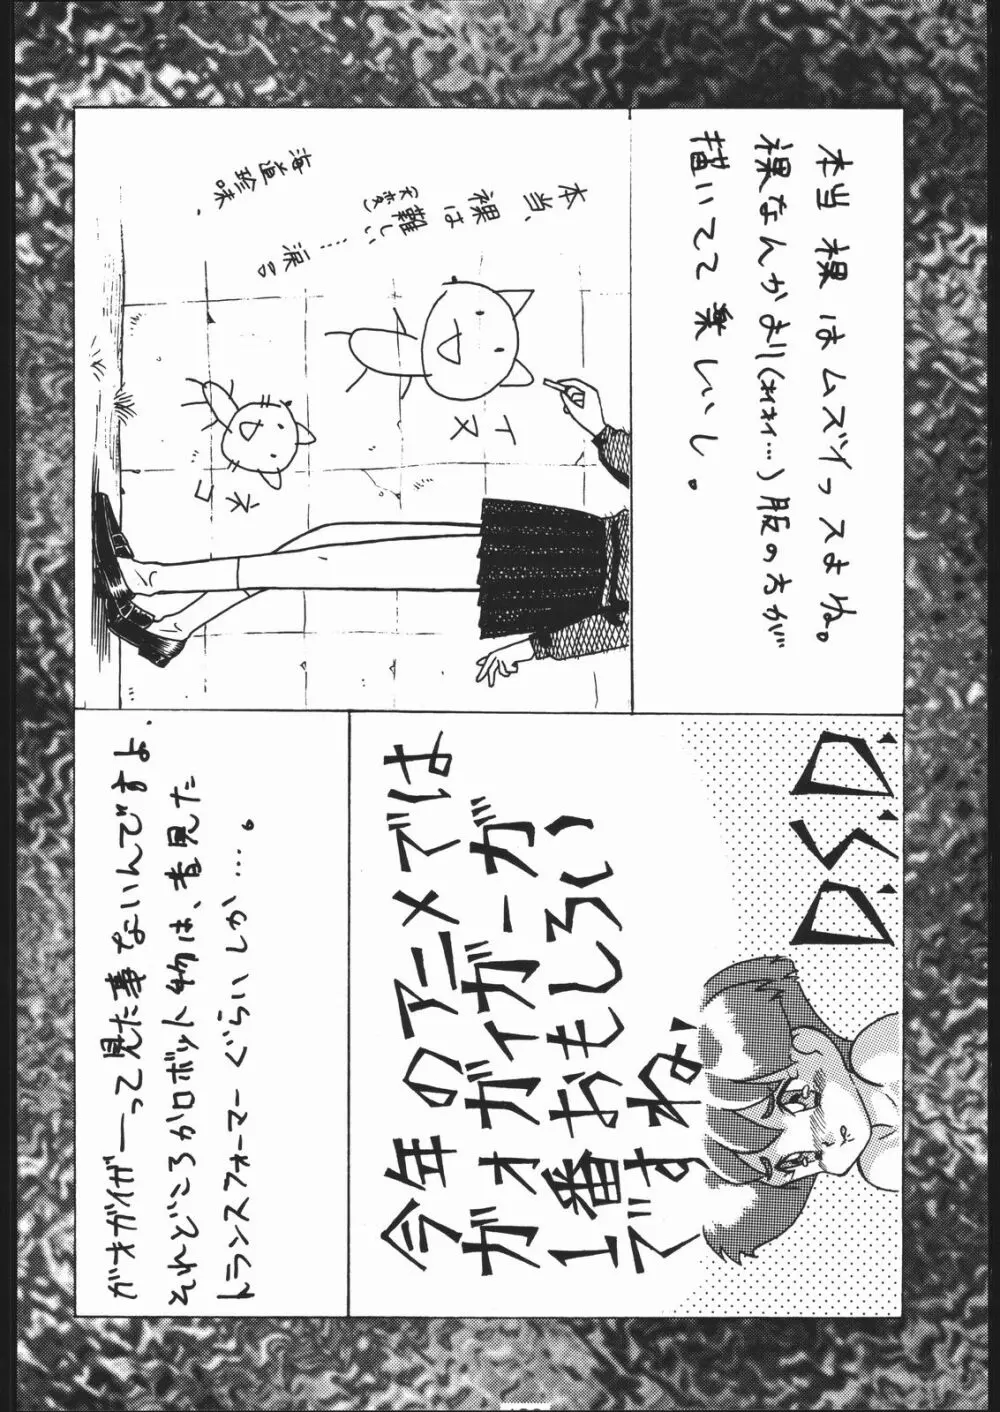 本当、
裸は
難しい
(大変)
……涙。
海道珍味.
イヌ
ネコ
本当裸はムズイっスよね。
裸なんかより(オイオイ…)服の方が
描いてて楽しいし。
D.S.D.
今年のアニメでは
ガオガイガーが
1番おもしろい
ですね
ガオガイガーって見た事ないんですよ.
それどころかロボット物は、昔見た
トランスフォーマーぐらいしか…。